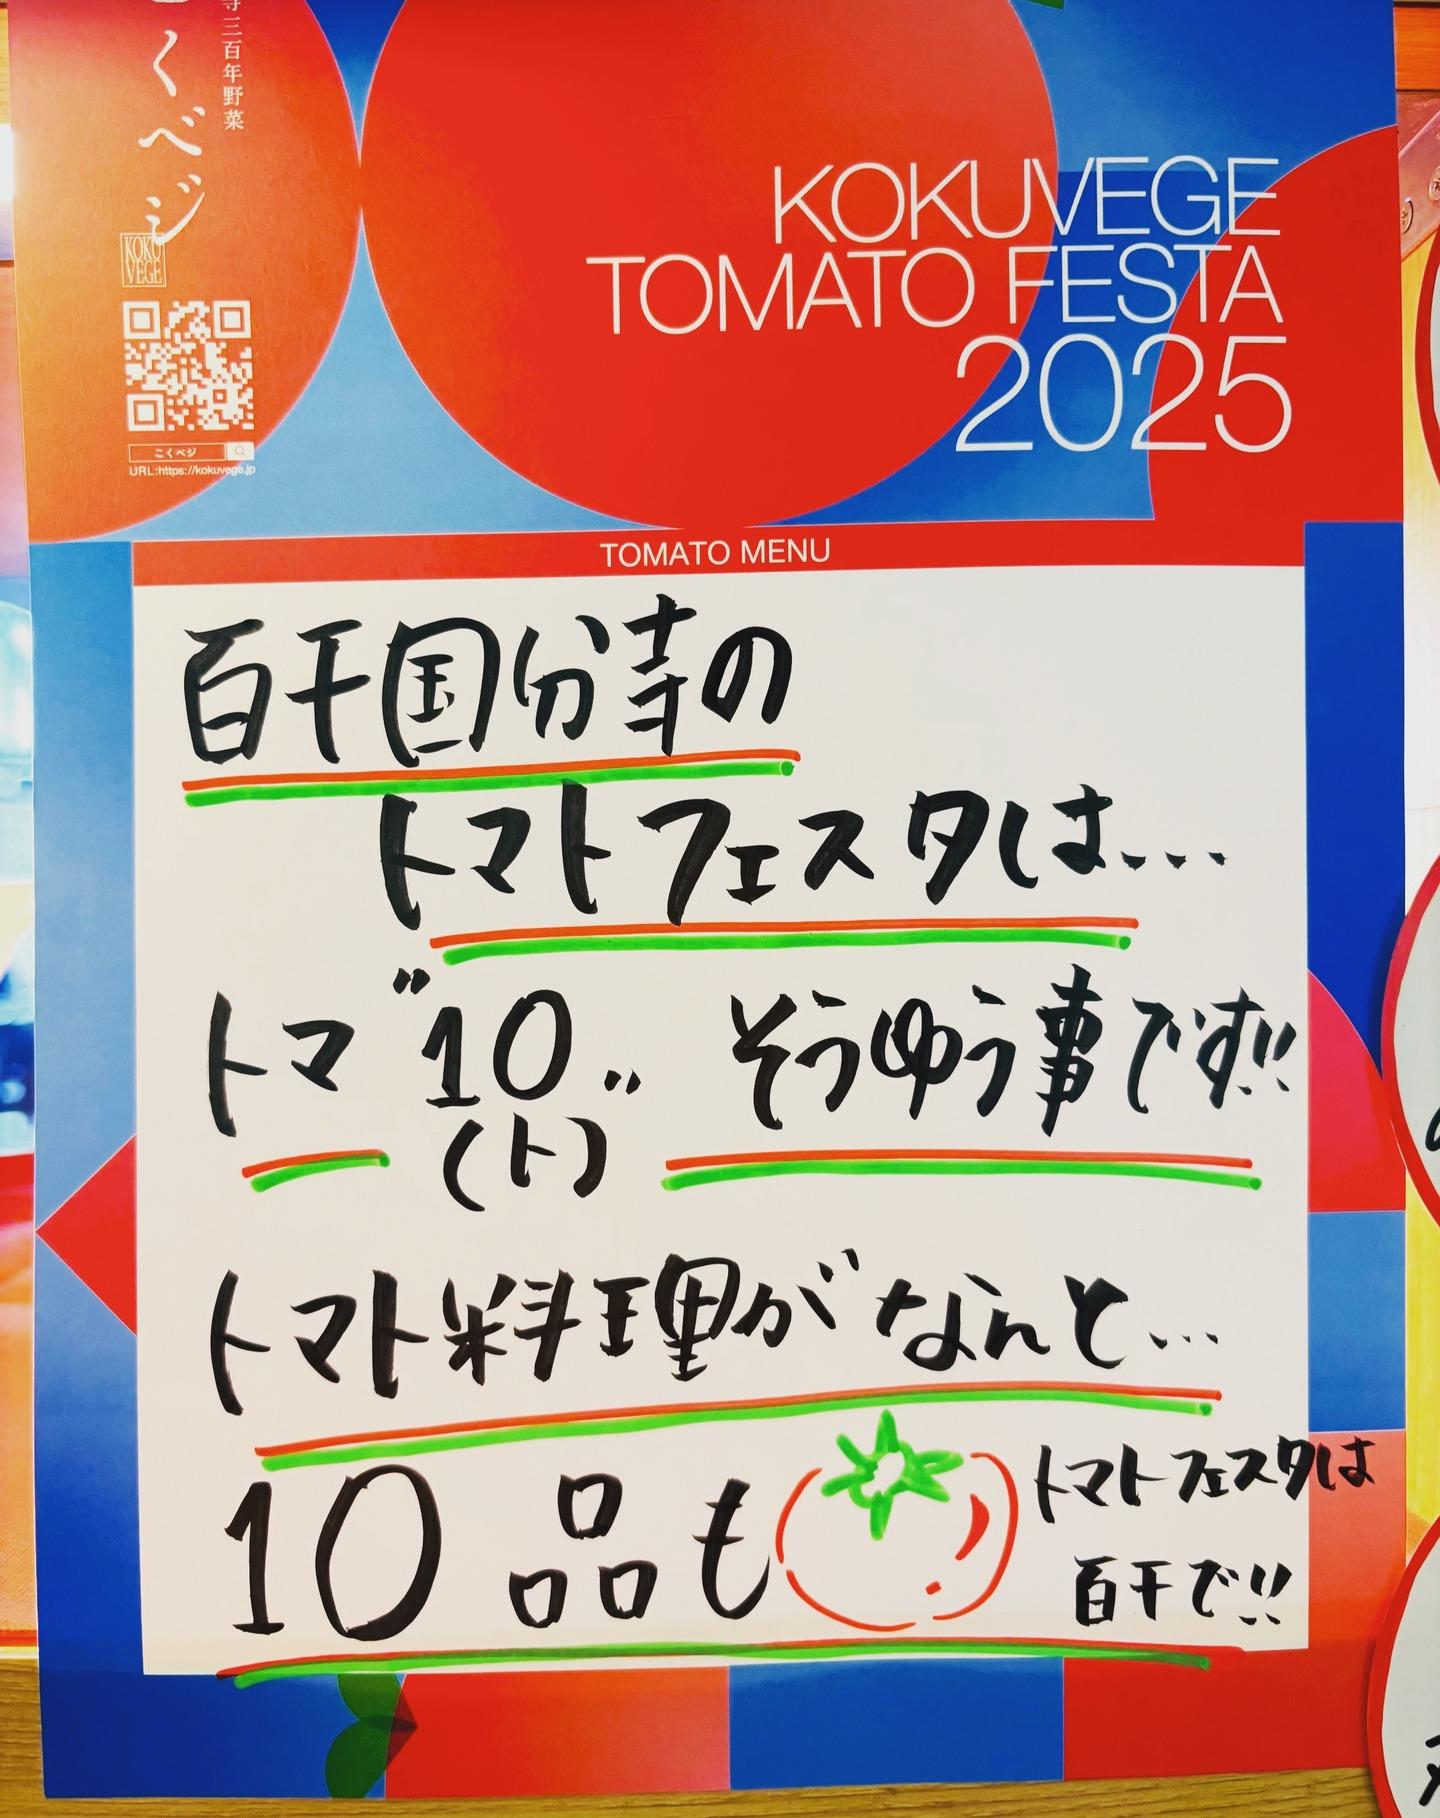 寺三百年野菜
くベジ
KOKU
VEGE
こくベジ
URL:https://kokuvege.jp
KOKUVEGE
TOMATO FESTA
2025
TOMATO MENU
百干国分寺の
トマトフェスタは...
トマ"10"そうゆう事です!!
(ト)
トマト料理がなんと...
10品も
トマトフェスタは
百干で!!